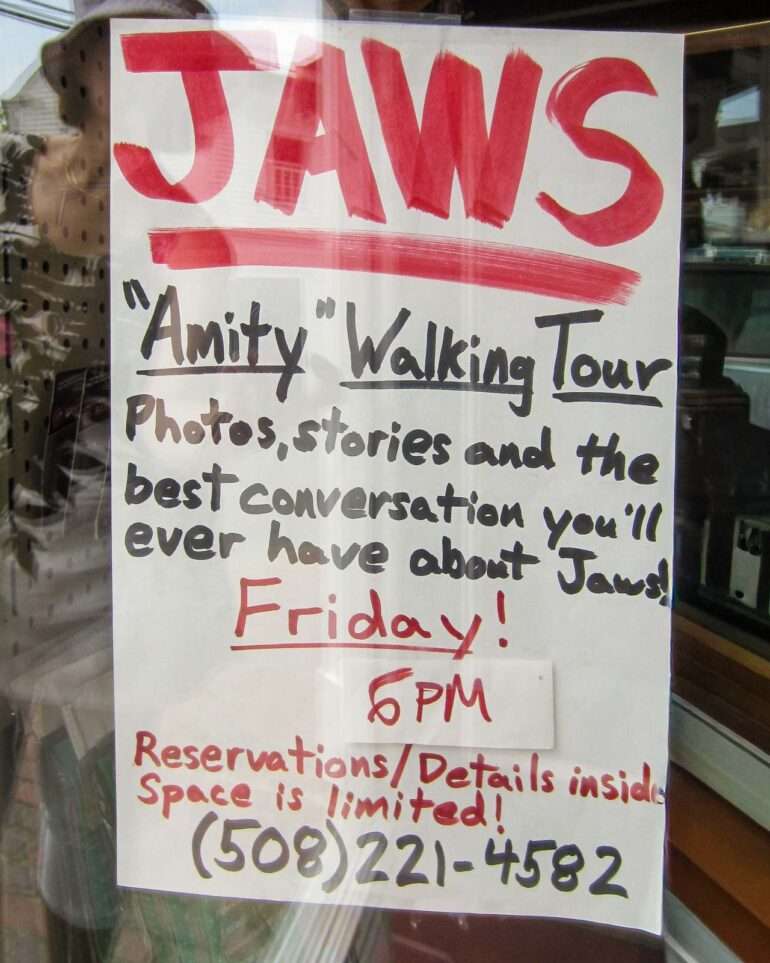 JAWS
"Amity" Walking Tour
Photos, stories and the
best conversation you'll
ever have about Jaws!
Friday!
6PM
Reservations/Details inside
Space is limited!
(508)221-4582